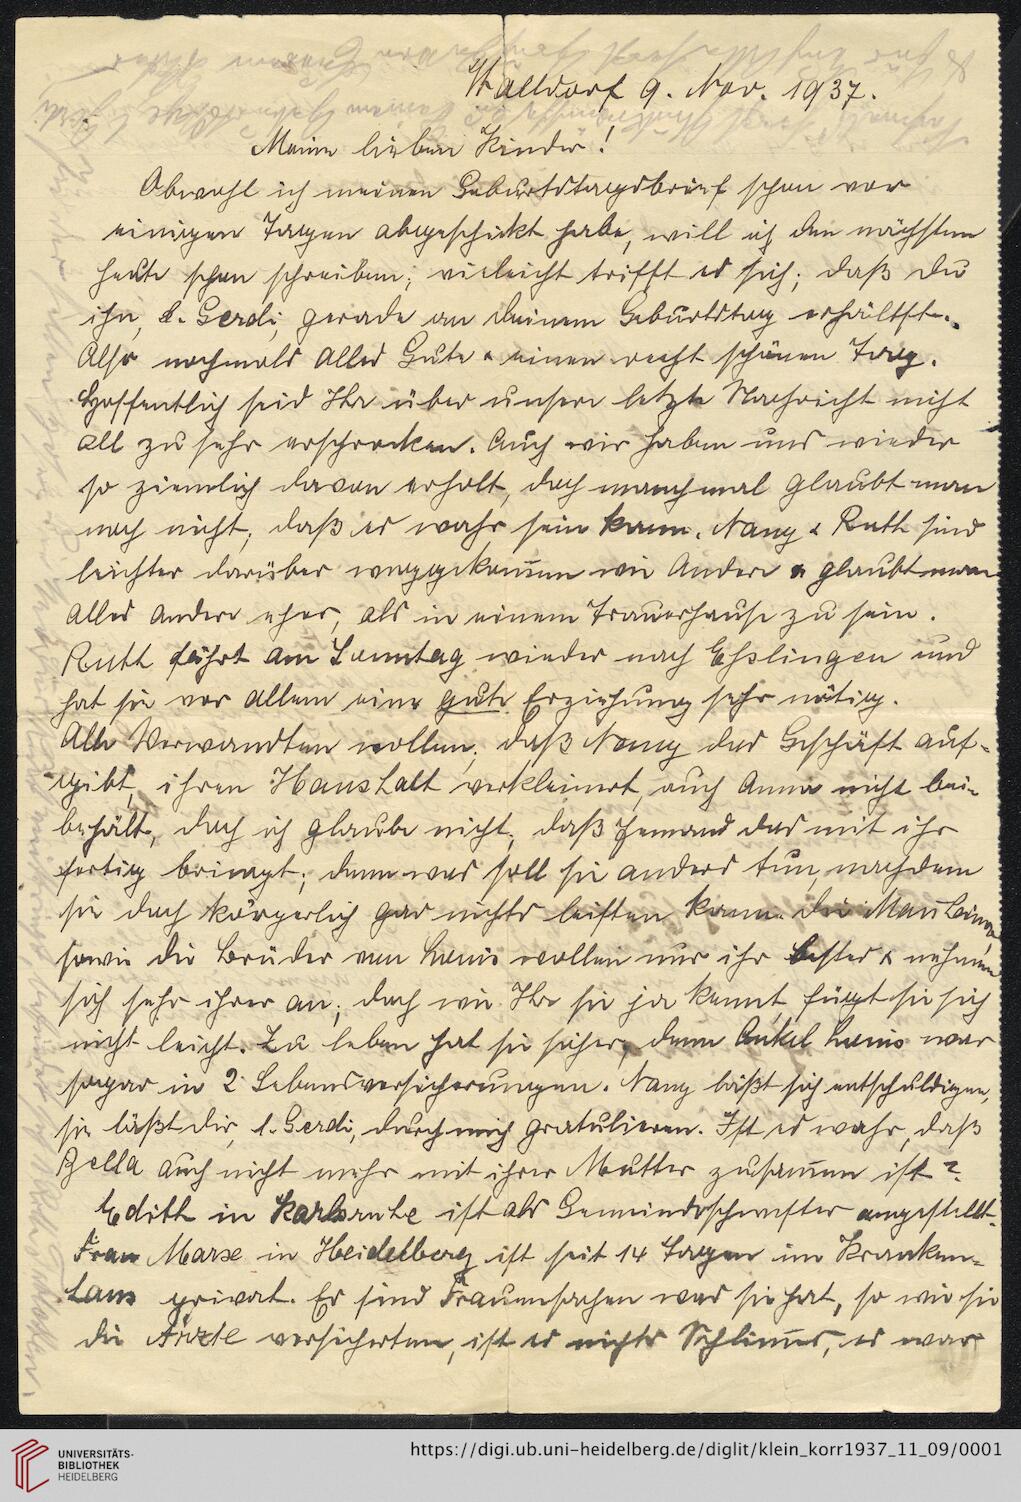 Walldorf 9. Nov. 1937.
Meine lieben Kinder!
Obwohl ich meinen Geburtstagsbrief schon vor
einigen Tagen abgeschickt habe, will ich den nächsten
heute schon schreiben; vieleicht trifft es sich, daß du
ihn, l. Gerdi, gerade an deinem Geburtstag erhältst.
Also nochmals alles Gute & einen recht schönen Tag.
Hoffentlich seid Ihr über unsere letzte Nachricht nicht
all zu sehr erschrocken. Auch wir haben uns wieder
so ziemlich davon erholt, doch manchmal glaubt man
noch nicht, daß es wahr sein kann. Nany & Ruth sind
leichter darüber weggekommen wie Andere & glaubt man
alles andere eher, als in einem Trauerhause zu sein.
Ruth fährt am Sonntag wieder nach Eßlingen und
hat sie vor allem eine gute Erziehung sehr nötig.
Alle Verwandten wollen, daß Nany das Geschäft auf-
gibt, ihren Haushalt verkleinert, auch Anna nicht bei-
behält, doch ich glaube nicht, daß Jemand das mit ihr
fertig bringt; denn was soll sie anders tun, nachdem
sie doch körperlich gar nichts leisten kann. Die
sowie die Brüder von Louis wollen nur ihr bestes & nehmen
sich sehr ihrer an; doch wie Ihr sie ja kennt, fügt sie sich
nicht leicht. Zu leben hat sie sicher, denn Onkel Louis war
sogar in 2 Lebensversicherungen. Nany läßt sich entschuldigen,
sie läßt dir, l. Gerdi, durch mich gratulieren. Ist es wahr, daß
Zella auch nicht mehr mit ihrer Mutter zusammen ist?
Edith in Karlsruhe ist als Gemeindeschwester angestellt.
Frau Marx in Heidelberg ist seit 14 Tagen im Kranken-
haus privat. Es sind Frauensachen was sie hat, so wie sie
die Ärzte versicherten, ist es nichts Schlimmes, es war
UNIVERSITÄTS-
BIBLIOTHEK
HEIDELBERG
https://digi.ub.uni-heidelberg.de/diglit/klein_korr1937_11_09/0001